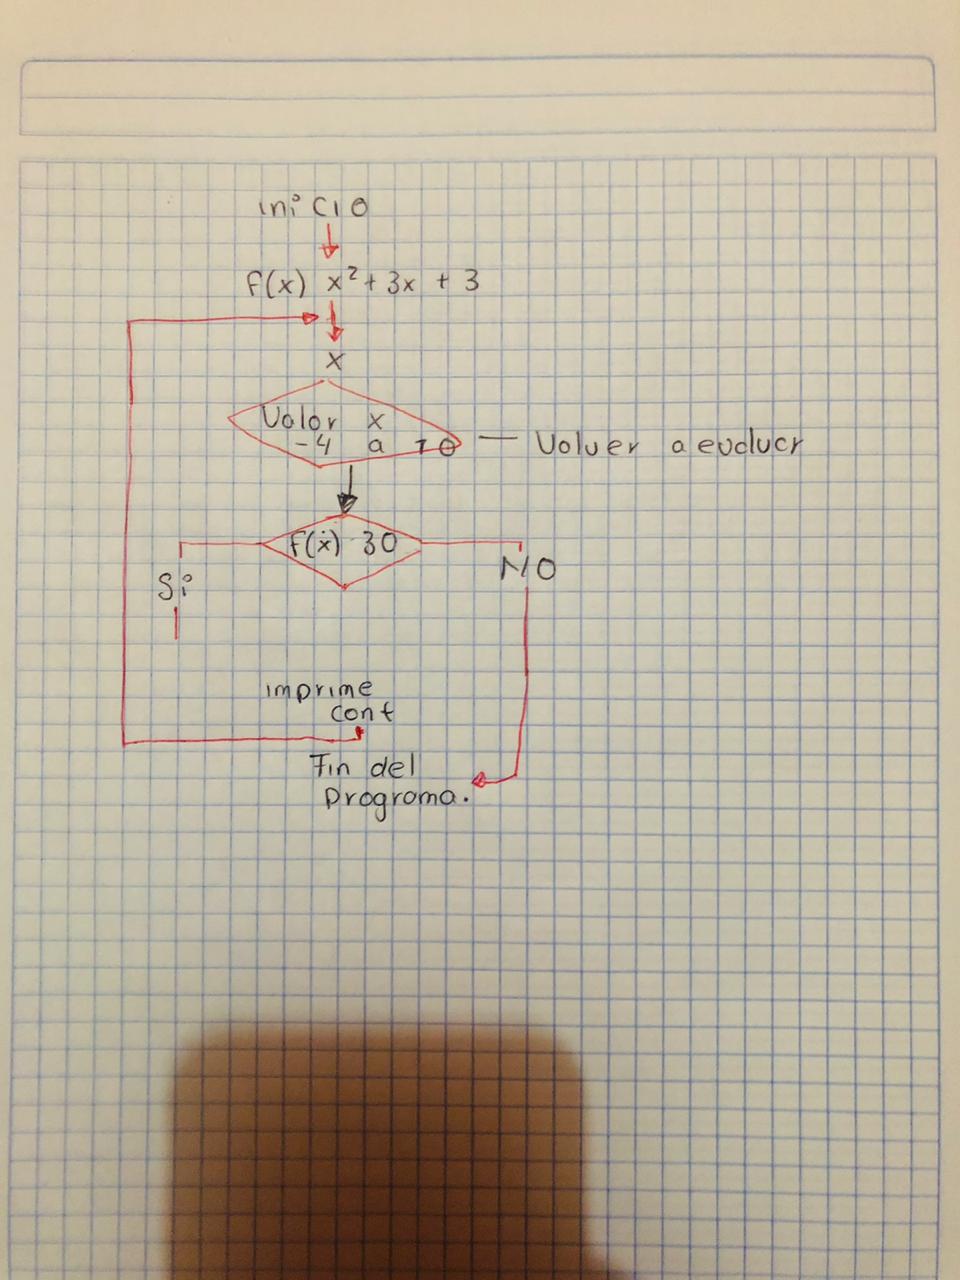 iniCIO
f(x) x²+3x + 3
x
Valor x
-4 a 10
Volver a evalucr
f(x) 30
Si
NO
imprime
cont
Fin del
programa.